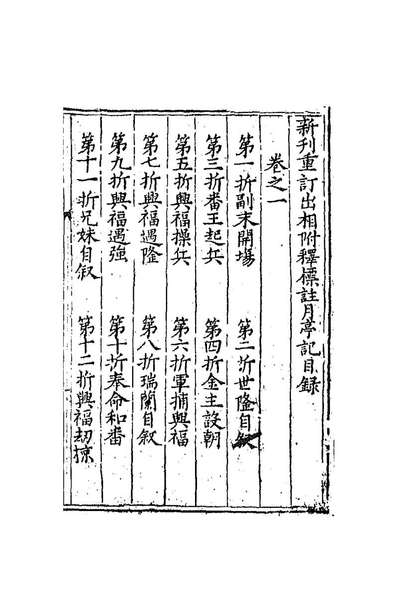 新刊重訂出相附釋標註月亭記目錄
卷之一
第一折副末開場 第二折世隆自叙
第三折番王起兵 第四折金主設朝
第五折興福操兵 第六折軍捕興福
第七折興福遇隆 第八折瑞蘭自叙
第九折興福遇強 第十折奉命和番
第十一折兄妹自叙 第十二折興福刼掠